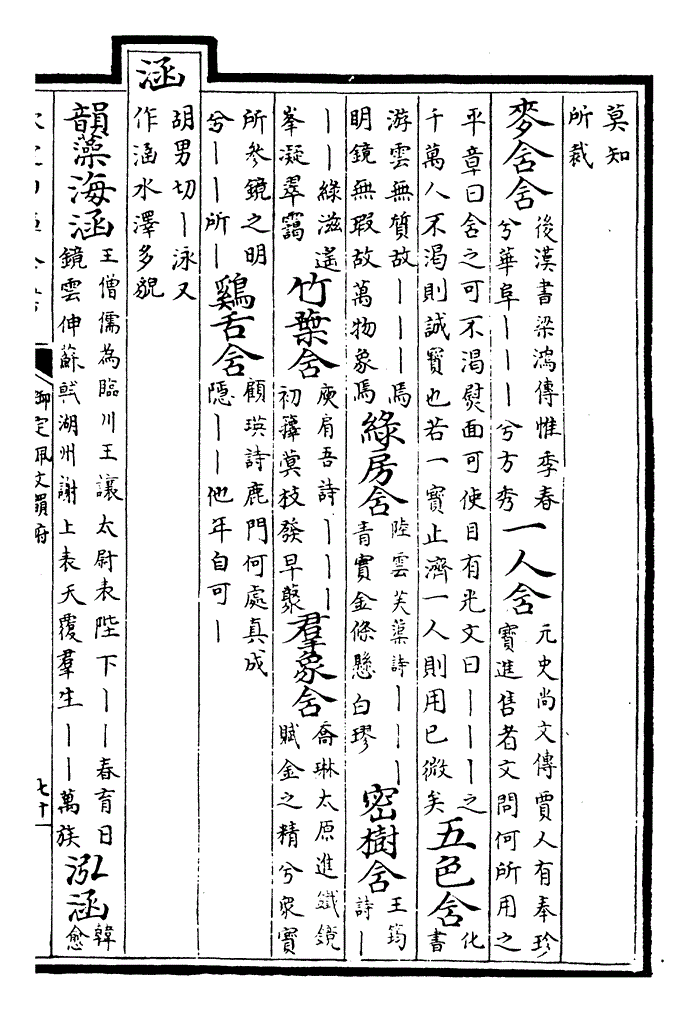 莫知
所裁
麥含含
後漢書梁鴻傳惟季春
兮華阜丨丨丨兮方秀
一人含
元史尚文傳賈人有奉珍
寶進售者文問何所用之
平章曰含之可不渴熨面可使目有光文曰丨丨丨之
千萬人不渴則誠寶也若一寶止濟一人則用已微矣
五色含
化
書
游雲無質故丨丨丨焉
明鏡無瑕故萬物象焉
綠房含
陸雲芙蕖詩丨丨丨
青實金條懸白璆
密樹含
王筠
詩丨
丨丨綠滋遙
峯凝翠靄
竹葉含
庾肩吾詩丨丨丨
初籜蓂枝發早藂
羣象含
喬琳太原進鐵鏡
賦金之精兮衆寶
所參鏡之明
兮丨丨所丨
鷄舌含
顧瑛詩鹿門何處真成
隠丨丨他年自可丨
涵
胡男切丨泳又
作涵水澤多貌
韻藻海涵
王僧儒為臨川王讓太尉表陛下丨丨春育日
鏡雲伸蘇軾湖州謝上表天覆羣生丨丨萬族
泓涵
韓
愈
御定佩文韻府
七十